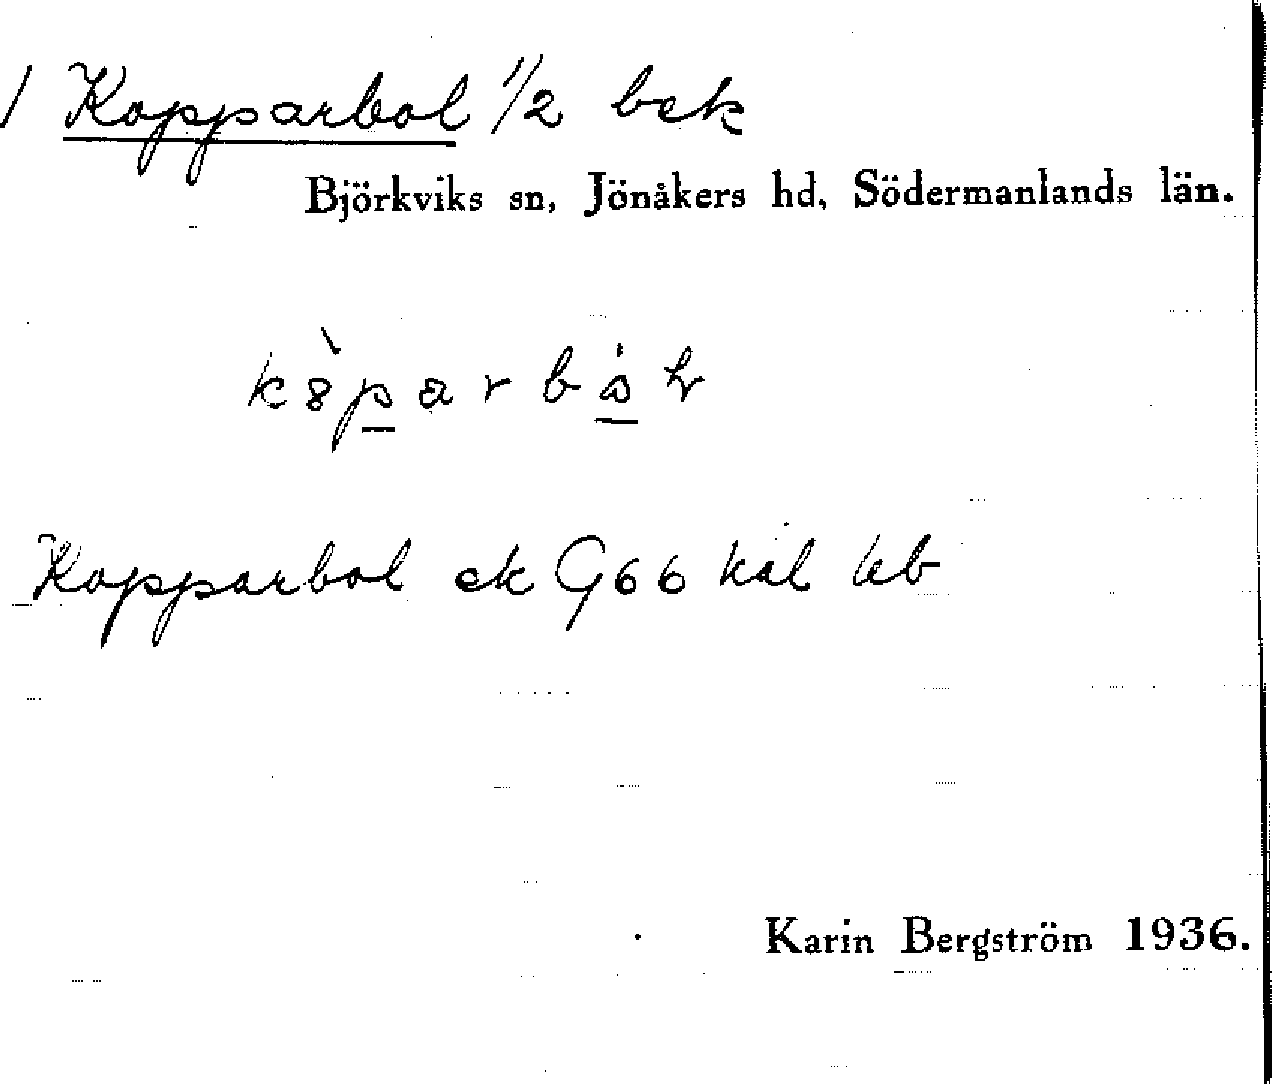 / Kopparbol 1/2 bek
Björkviks sn, Jönåkers hd, Södermanlands län.
Kopparbol ek G66 kal
Karin Bergström 1936.